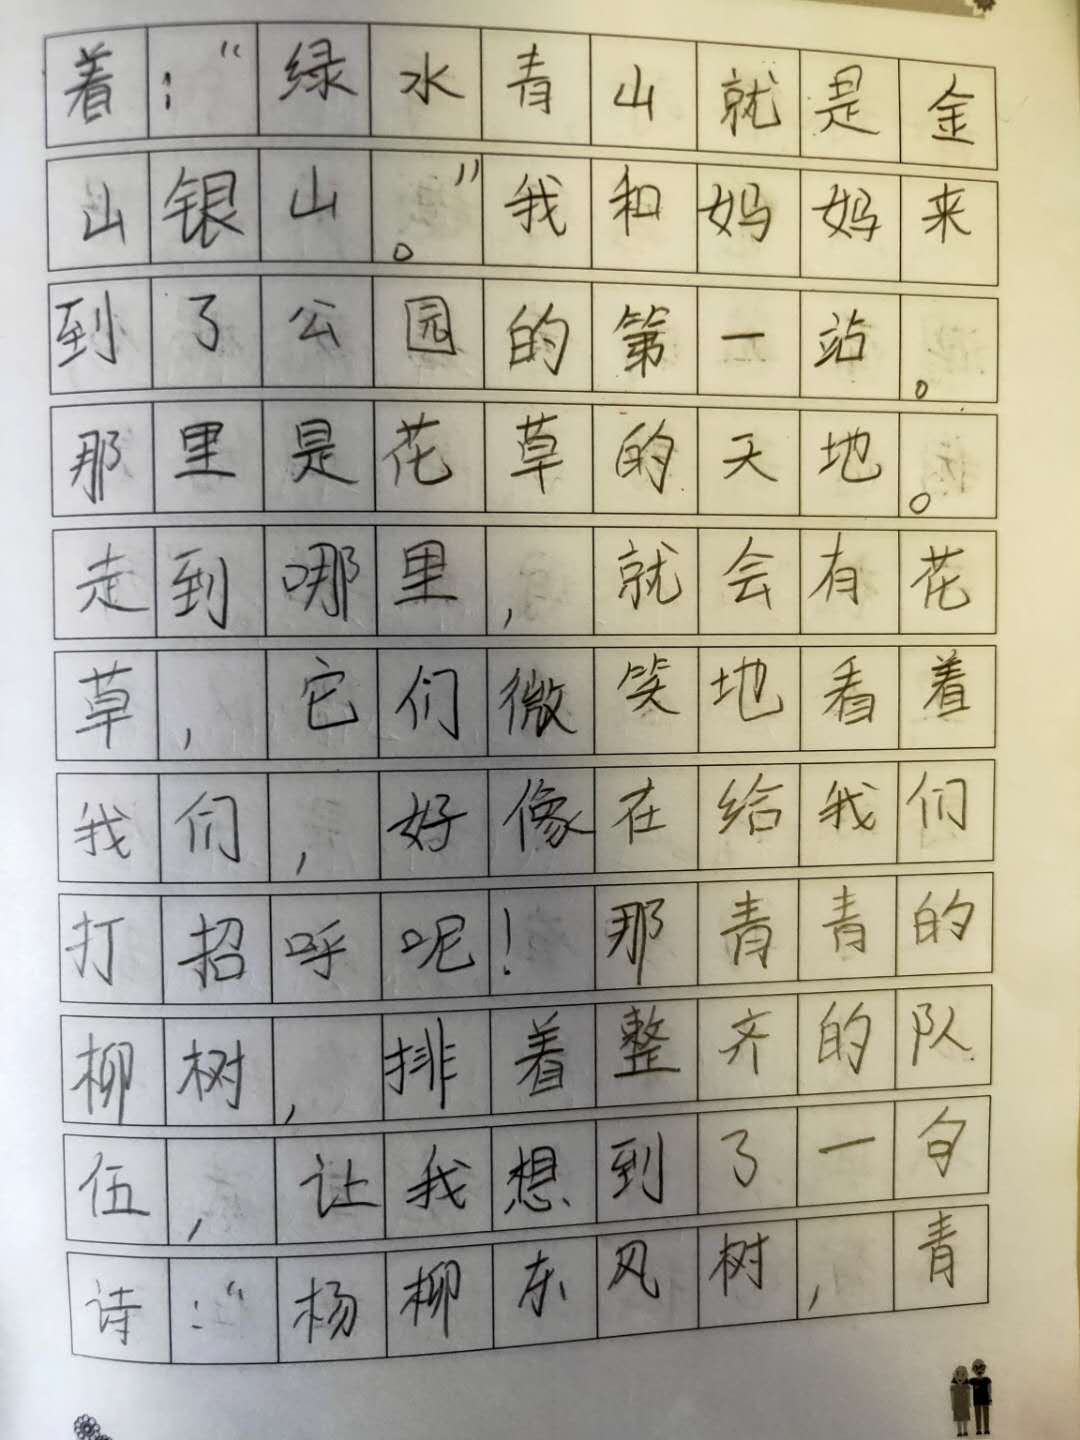 着：“绿水青山就是金
山银山。”我和妈妈来
到了公园的第一站。
那里是花草的天地。
走到哪里，就会有花
草，它们微笑地看着
我们，好像在给我们
打招呼呢！那青青的
柳树，排着整齐的队
伍，让我想到了一句
诗：“杨柳东风树，青